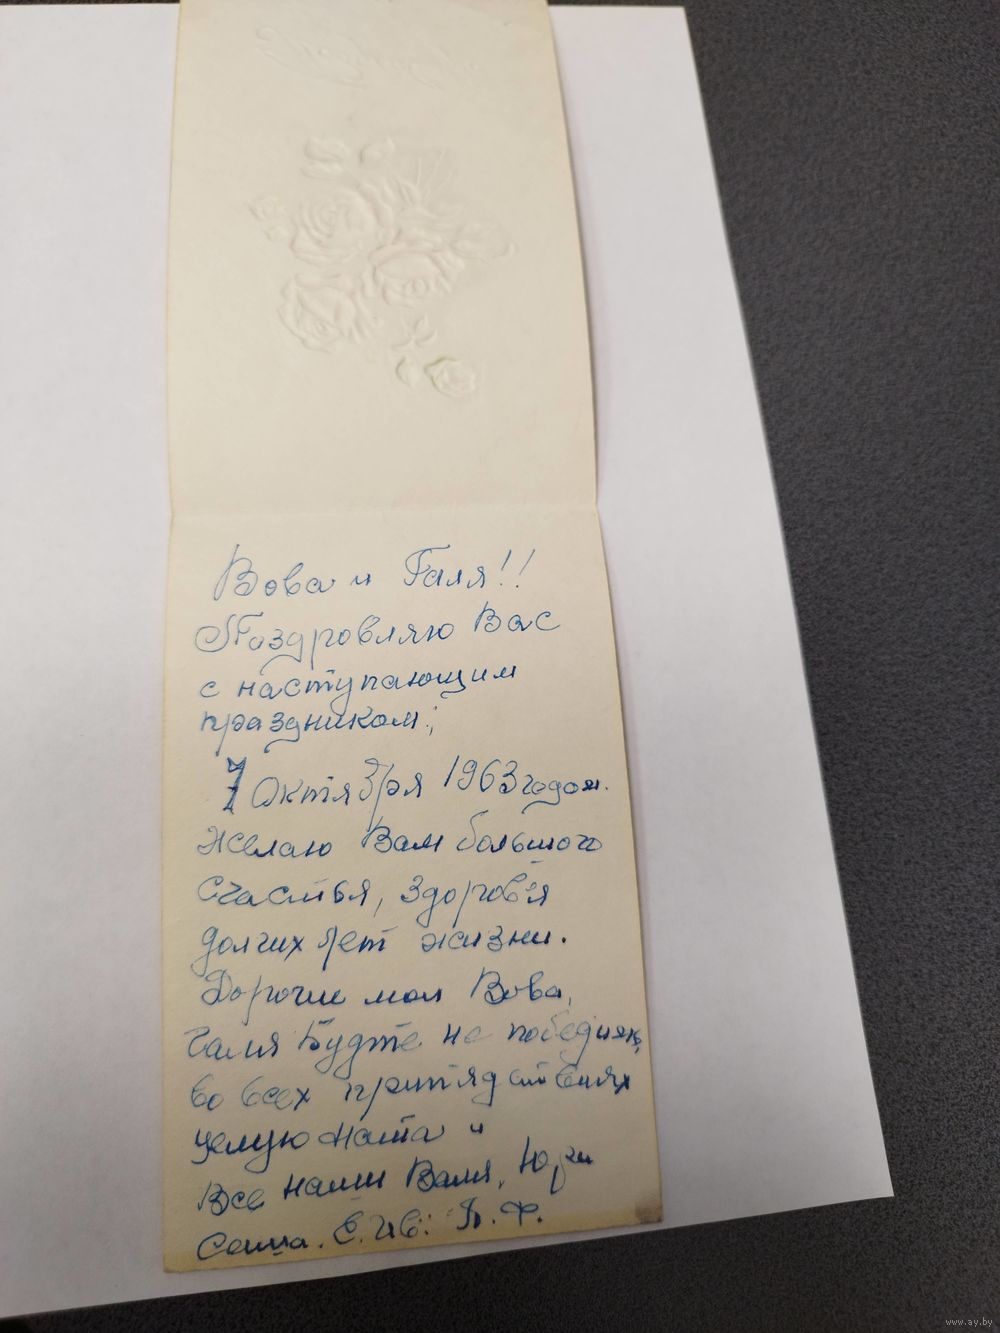 Вова и Галя!!
Поздровляю Вас
с наступающим
праздником;
7 Октября 1963 годом.
Желаю Вам большого
счастья, здоров'я
долгих лет жизни.
Дорогие мои Вова,
Галя Будте не победими,
во всех
целую Ната и
Все наши Валя, Юра
Саша. Е. Ив. П. Ф.
www.ay.by